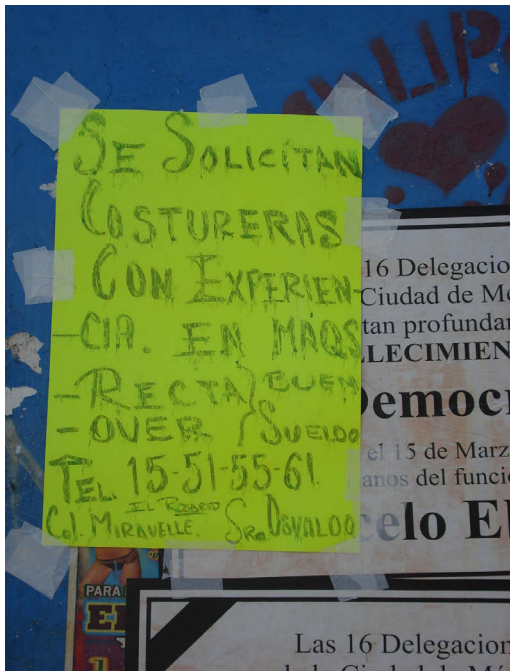 SE SOLICITAN
COSTURERAS
CON EXPERIEN-
-CIA. EN MAQS
-RECTA } BUEN
-OVER } SUELDO
TEL 15-51-55-61
EL ROSARIO
Col. MIRAVELLE. SR. OSVALDO
LIP
16 Delegacio
Ciudad de Mé
tan profundam
LLECIMIEN
Democr
el 15 de Marz
anos del funcio
celo E
PARA
E
Las 16 Delegacion
de la Ciudad de Méx